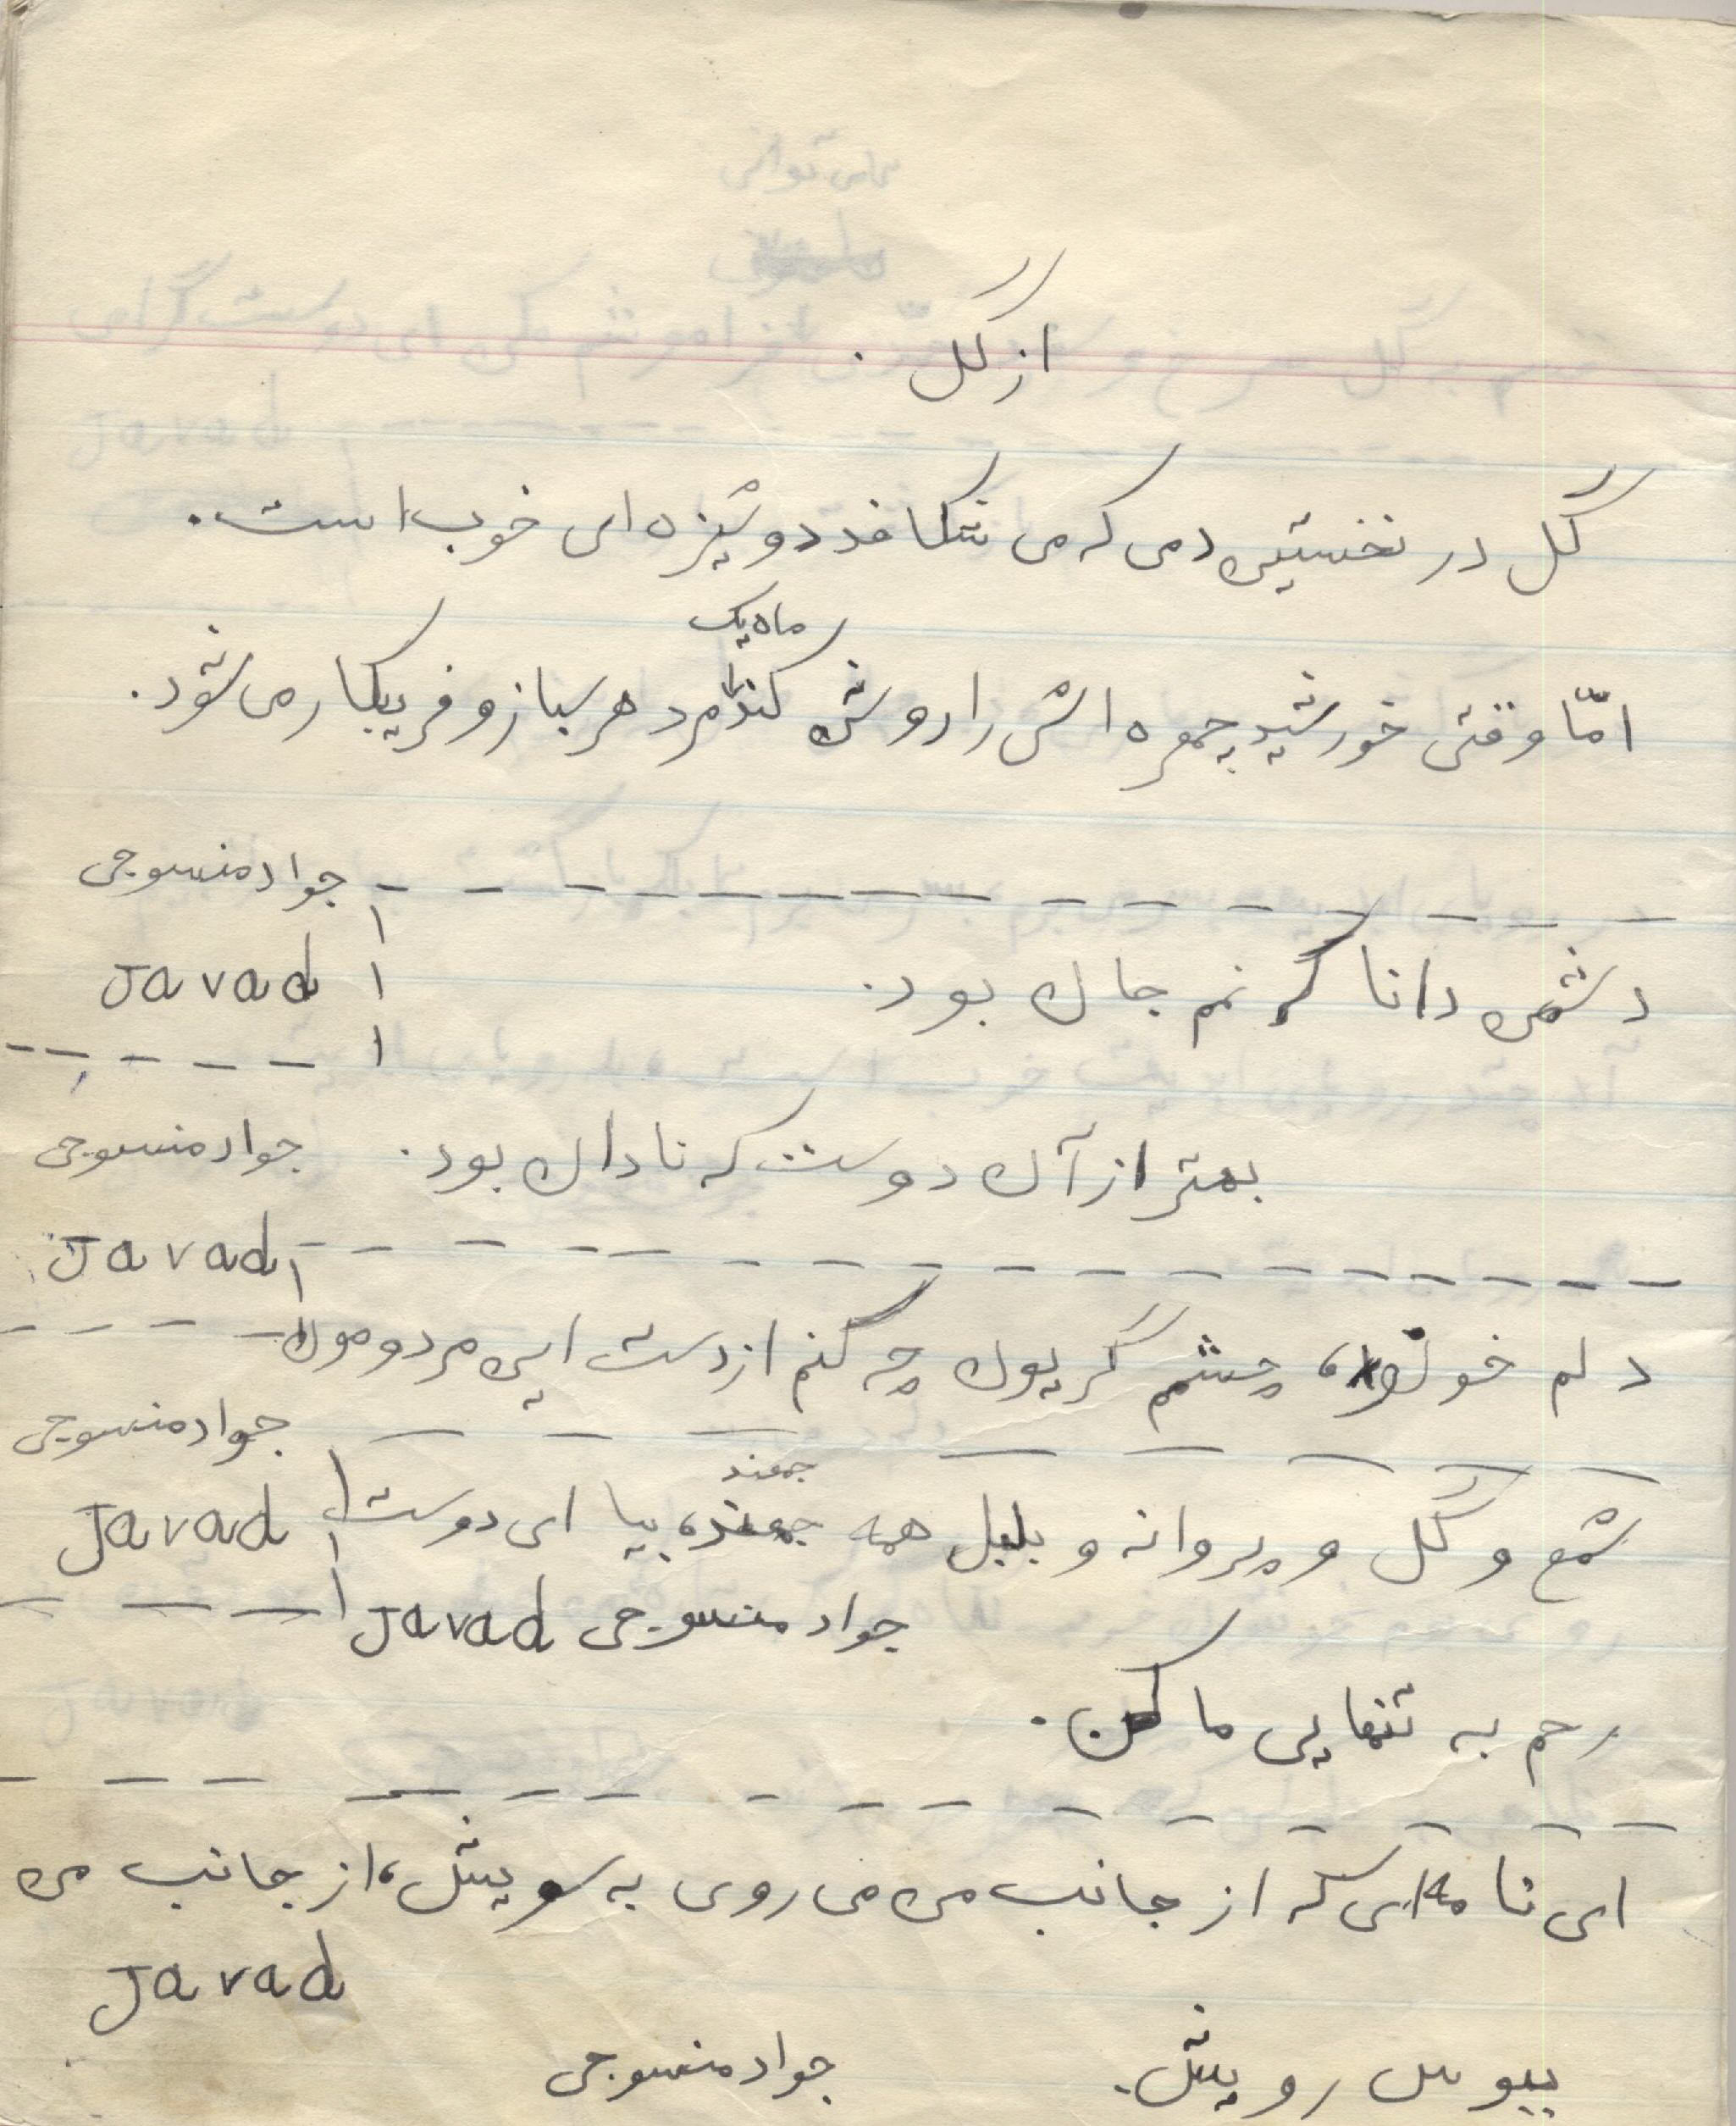 از گل .
گل در نخستین دمی که می شکافد دوشیزه ای خوب است.
ماه یک
امّا وقتی خورشید چهره اش را روشن کند مرد هرسباز و فریبکار می شود.
جواد منسوجی
Javad
دشمن دانا که غم جان بود.
بهتر از آن دوست که نادان بود. جواد منسوجی
Javad
دلم خون، چشم گریون چه کنم از دست این مردومون
جواد منسوجی
جمعند
شمع و گل و پروانه و بلبل همه جمعند، بیا ای دوست Javad
جواد منسوجی Javad
رحم به تنهایی ما کن.
ای نامه ای که از جانب من می روی به سویش، از جانب من
Javad
ببوس رویش. جواد منسوجی